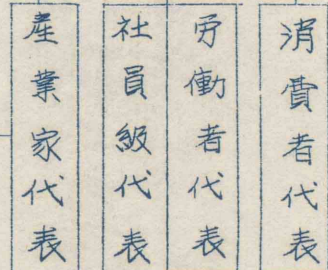 消費者代表
労働者代表
社員級代表
産業家代表